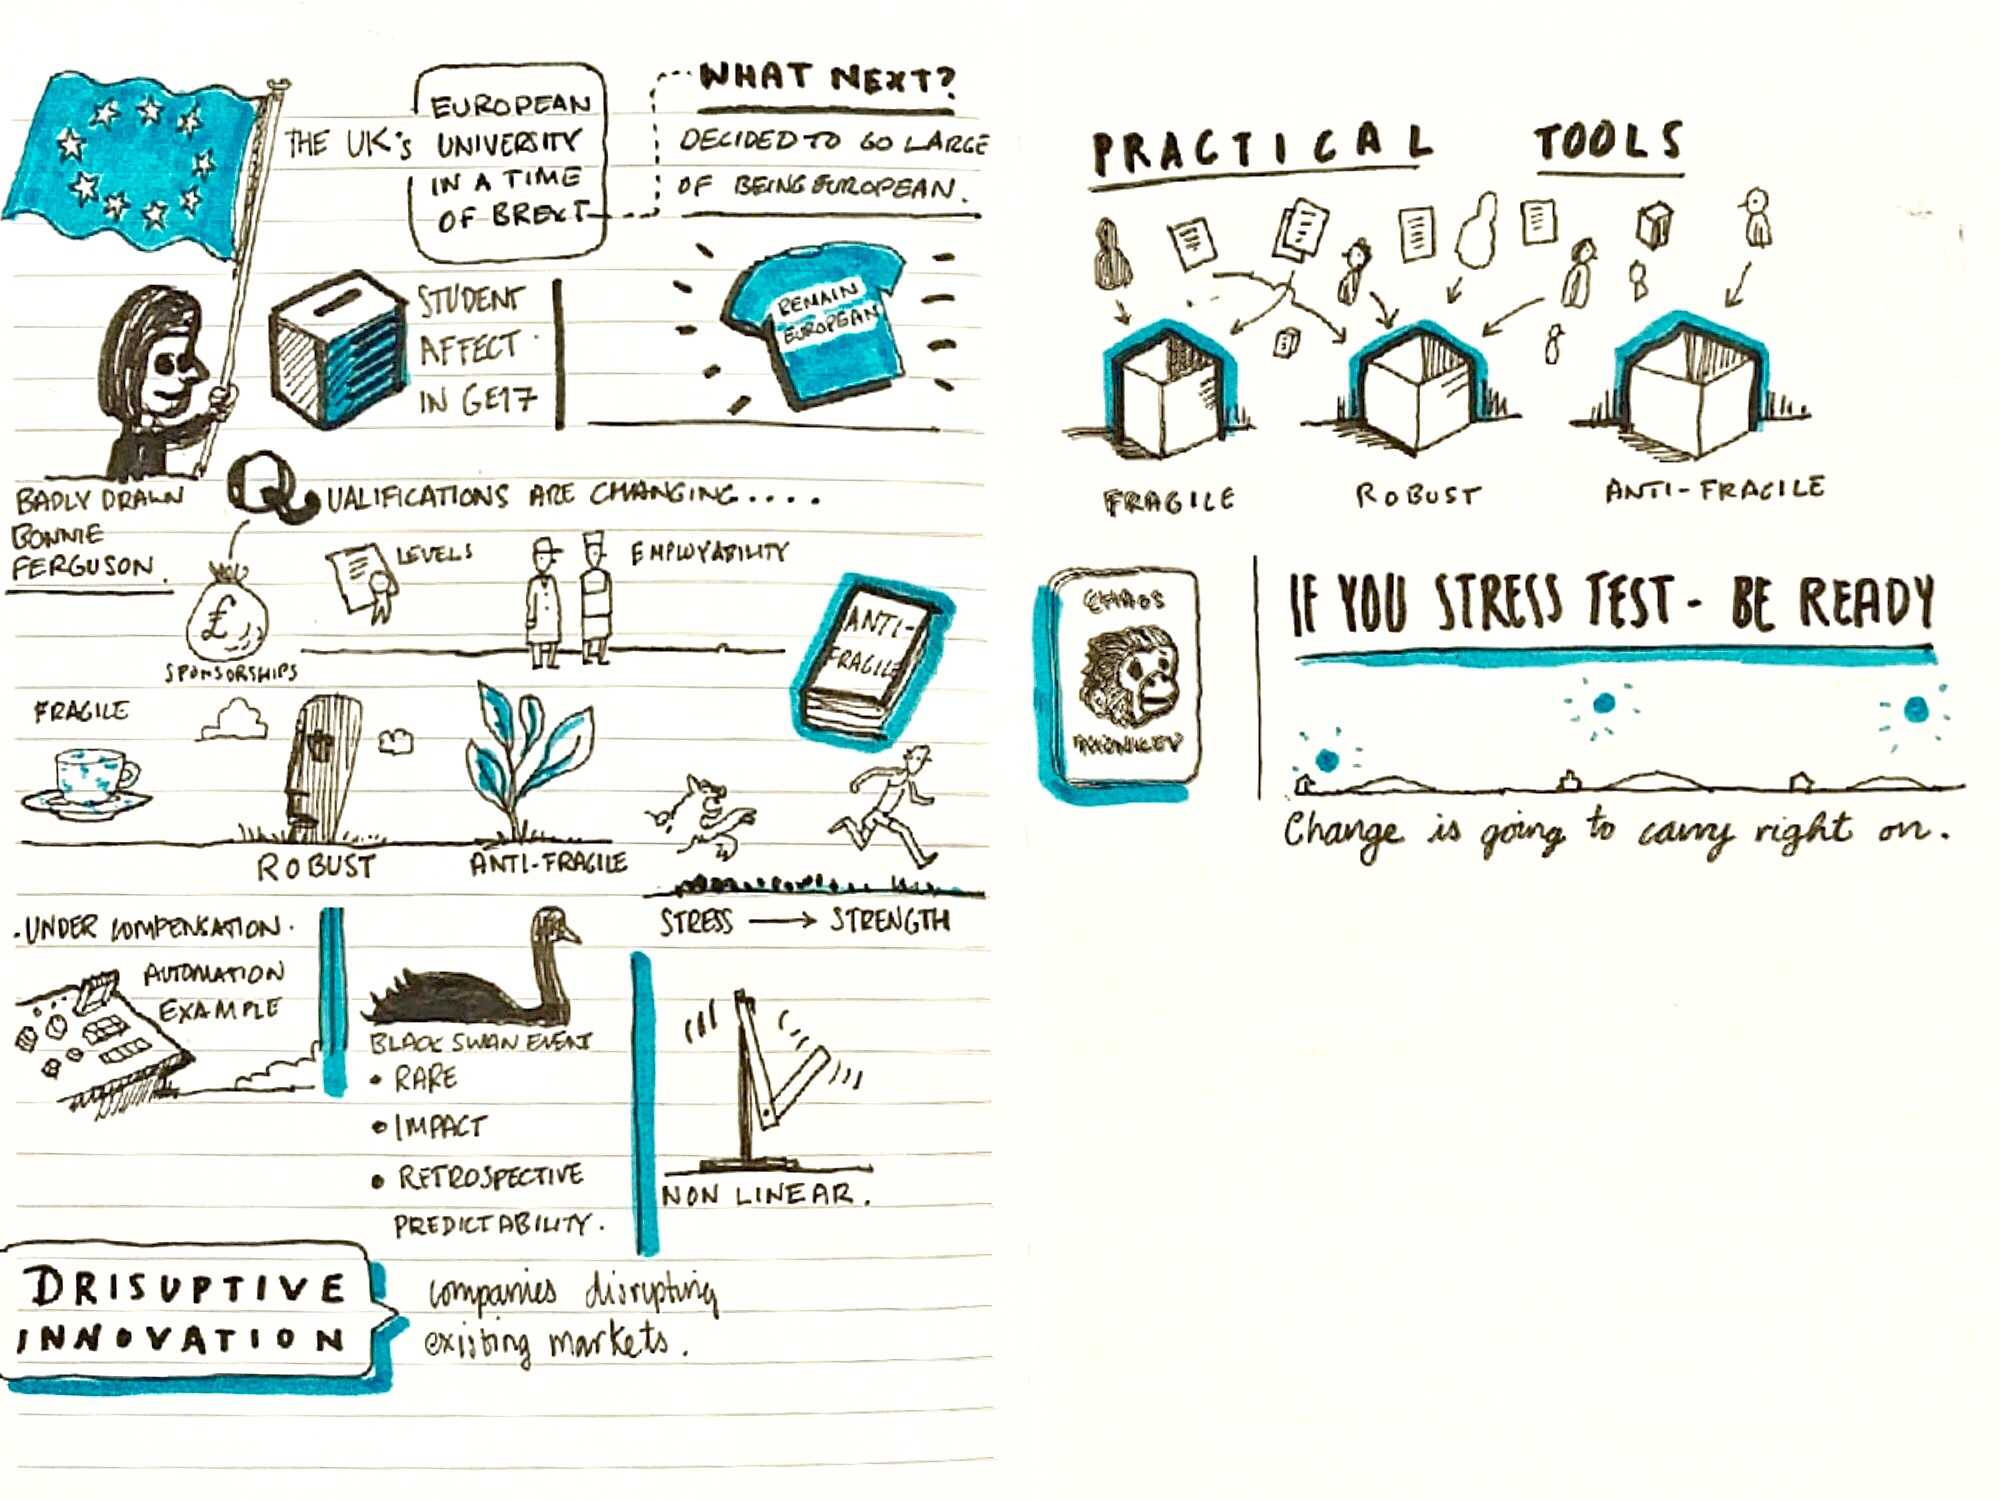 THE UK's
EUROPEAN
UNIVERSITY
IN A TIME
OF BREXT
WHAT NEXT?
DECIDED TO GO LARGE
OF BEING EUROPEAN.
STUDENT
AFFECT
IN GE17
REMAIN
EUROPEAN
BADLY DRAWN
BONNIE
FERGUSON.
QUALIFICATIONS ARE CHANGING....
£
SPONSORSHIPS
LEVELS
EMPLOYABILITY
ANTI-
FRAGILE
FRAGILE
ROBUST
ANTI-FRAGILE
STRESS → STRENGTH
.UNDER COMPENSATION.
AUTOMATION
EXAMPLE
BLACK SWAN EVENT
• RARE
• IMPACT
• RETROSPECTIVE
PREDICTABILITY.
NON LINEAR.
DRISUPTIVE
INNOVATION
companies disrupting
existing markets.
PRACTICAL TOOLS
FRAGILE
ROBUST
ANTI-FRAGILE
CHAOS
MONKEY
IF YOU STRESS TEST - BE READY
Change is going to carry right on.